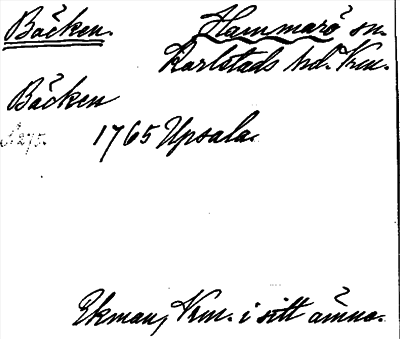 Bäcken. Hammarö sn.
Karlstads hd. Vrm.
Bäcken
S. 275. 1765 Upsala.
Ekman, Vrm. i sitt ämne.